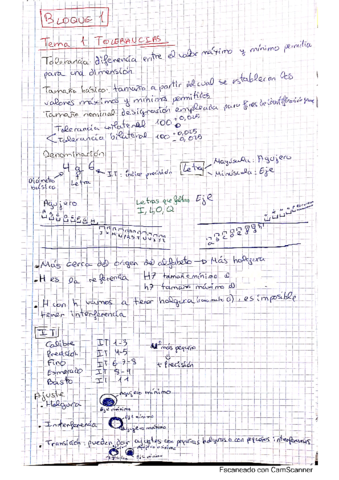 BLOQUE 1
Tema 1: TOLERANCIAS
Tolerancia diferencia entre el valor máximo y mínimo permitia
para una dimensión
Tamaño básico: tamaño a partir del cual se establecen los
valores máximos y mínimos permitidos
Tamaño nominal: designación empleada para fines
Tolerancia unilateral 100
Tolerancia bilateral 100
Denominación
4 g 6 IT: índice precisión
Diámetro básico
Letra
Letra
Mayúscula: Agujero
Minúscula: Eje
Agujero
Letras que faltan
I, L, O, Q
Eje
Más cerca del origen del alfabeto → Más holgura
H es la referencia H7 tamaño mínimo 0
h7 tamaño máximo 0
H con h, vamos a tener holgura ; es imposible
tener interferencia
IT
Calibre IT 1-3
Precisión IT 4-5
Fino IT 6-7-8
Esmerado IT 8-9
Basto IT 11
Nº más pequeño
+ Precisión
Ajuste
- Holgura
Agujero mínimo
Eje máximo
- Interferencia
Eje mínimo
Agujero máximo
- Transición: pueden dar ajustes con pequeñas holguras o con pequeñas interferencias
Escaneado con CamScanner